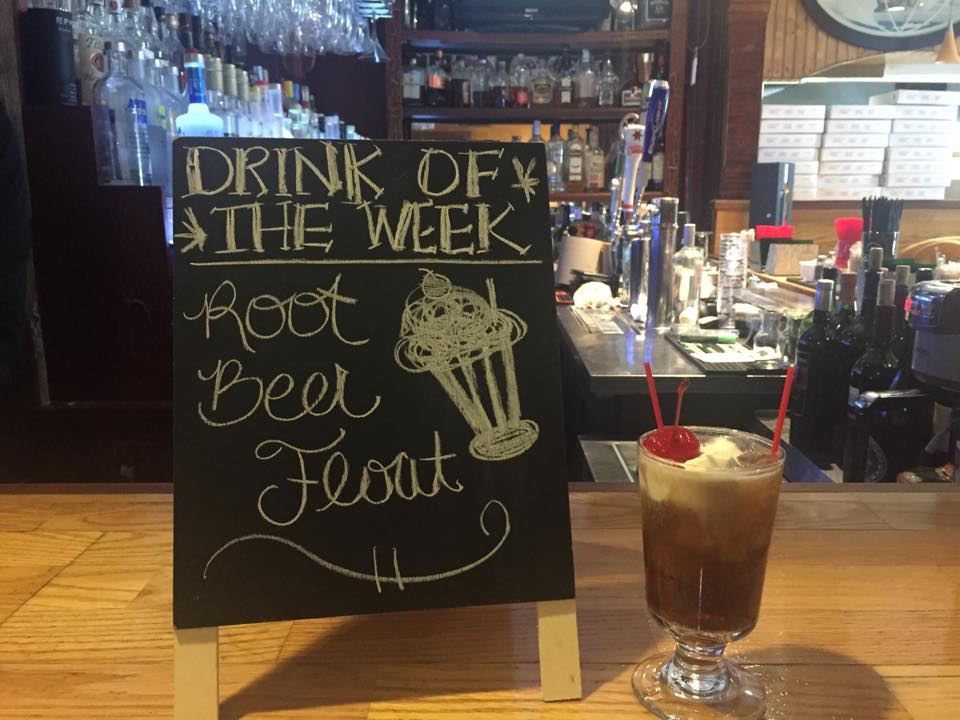 DRINK OF
THE WEEK
Root
Beer
Float